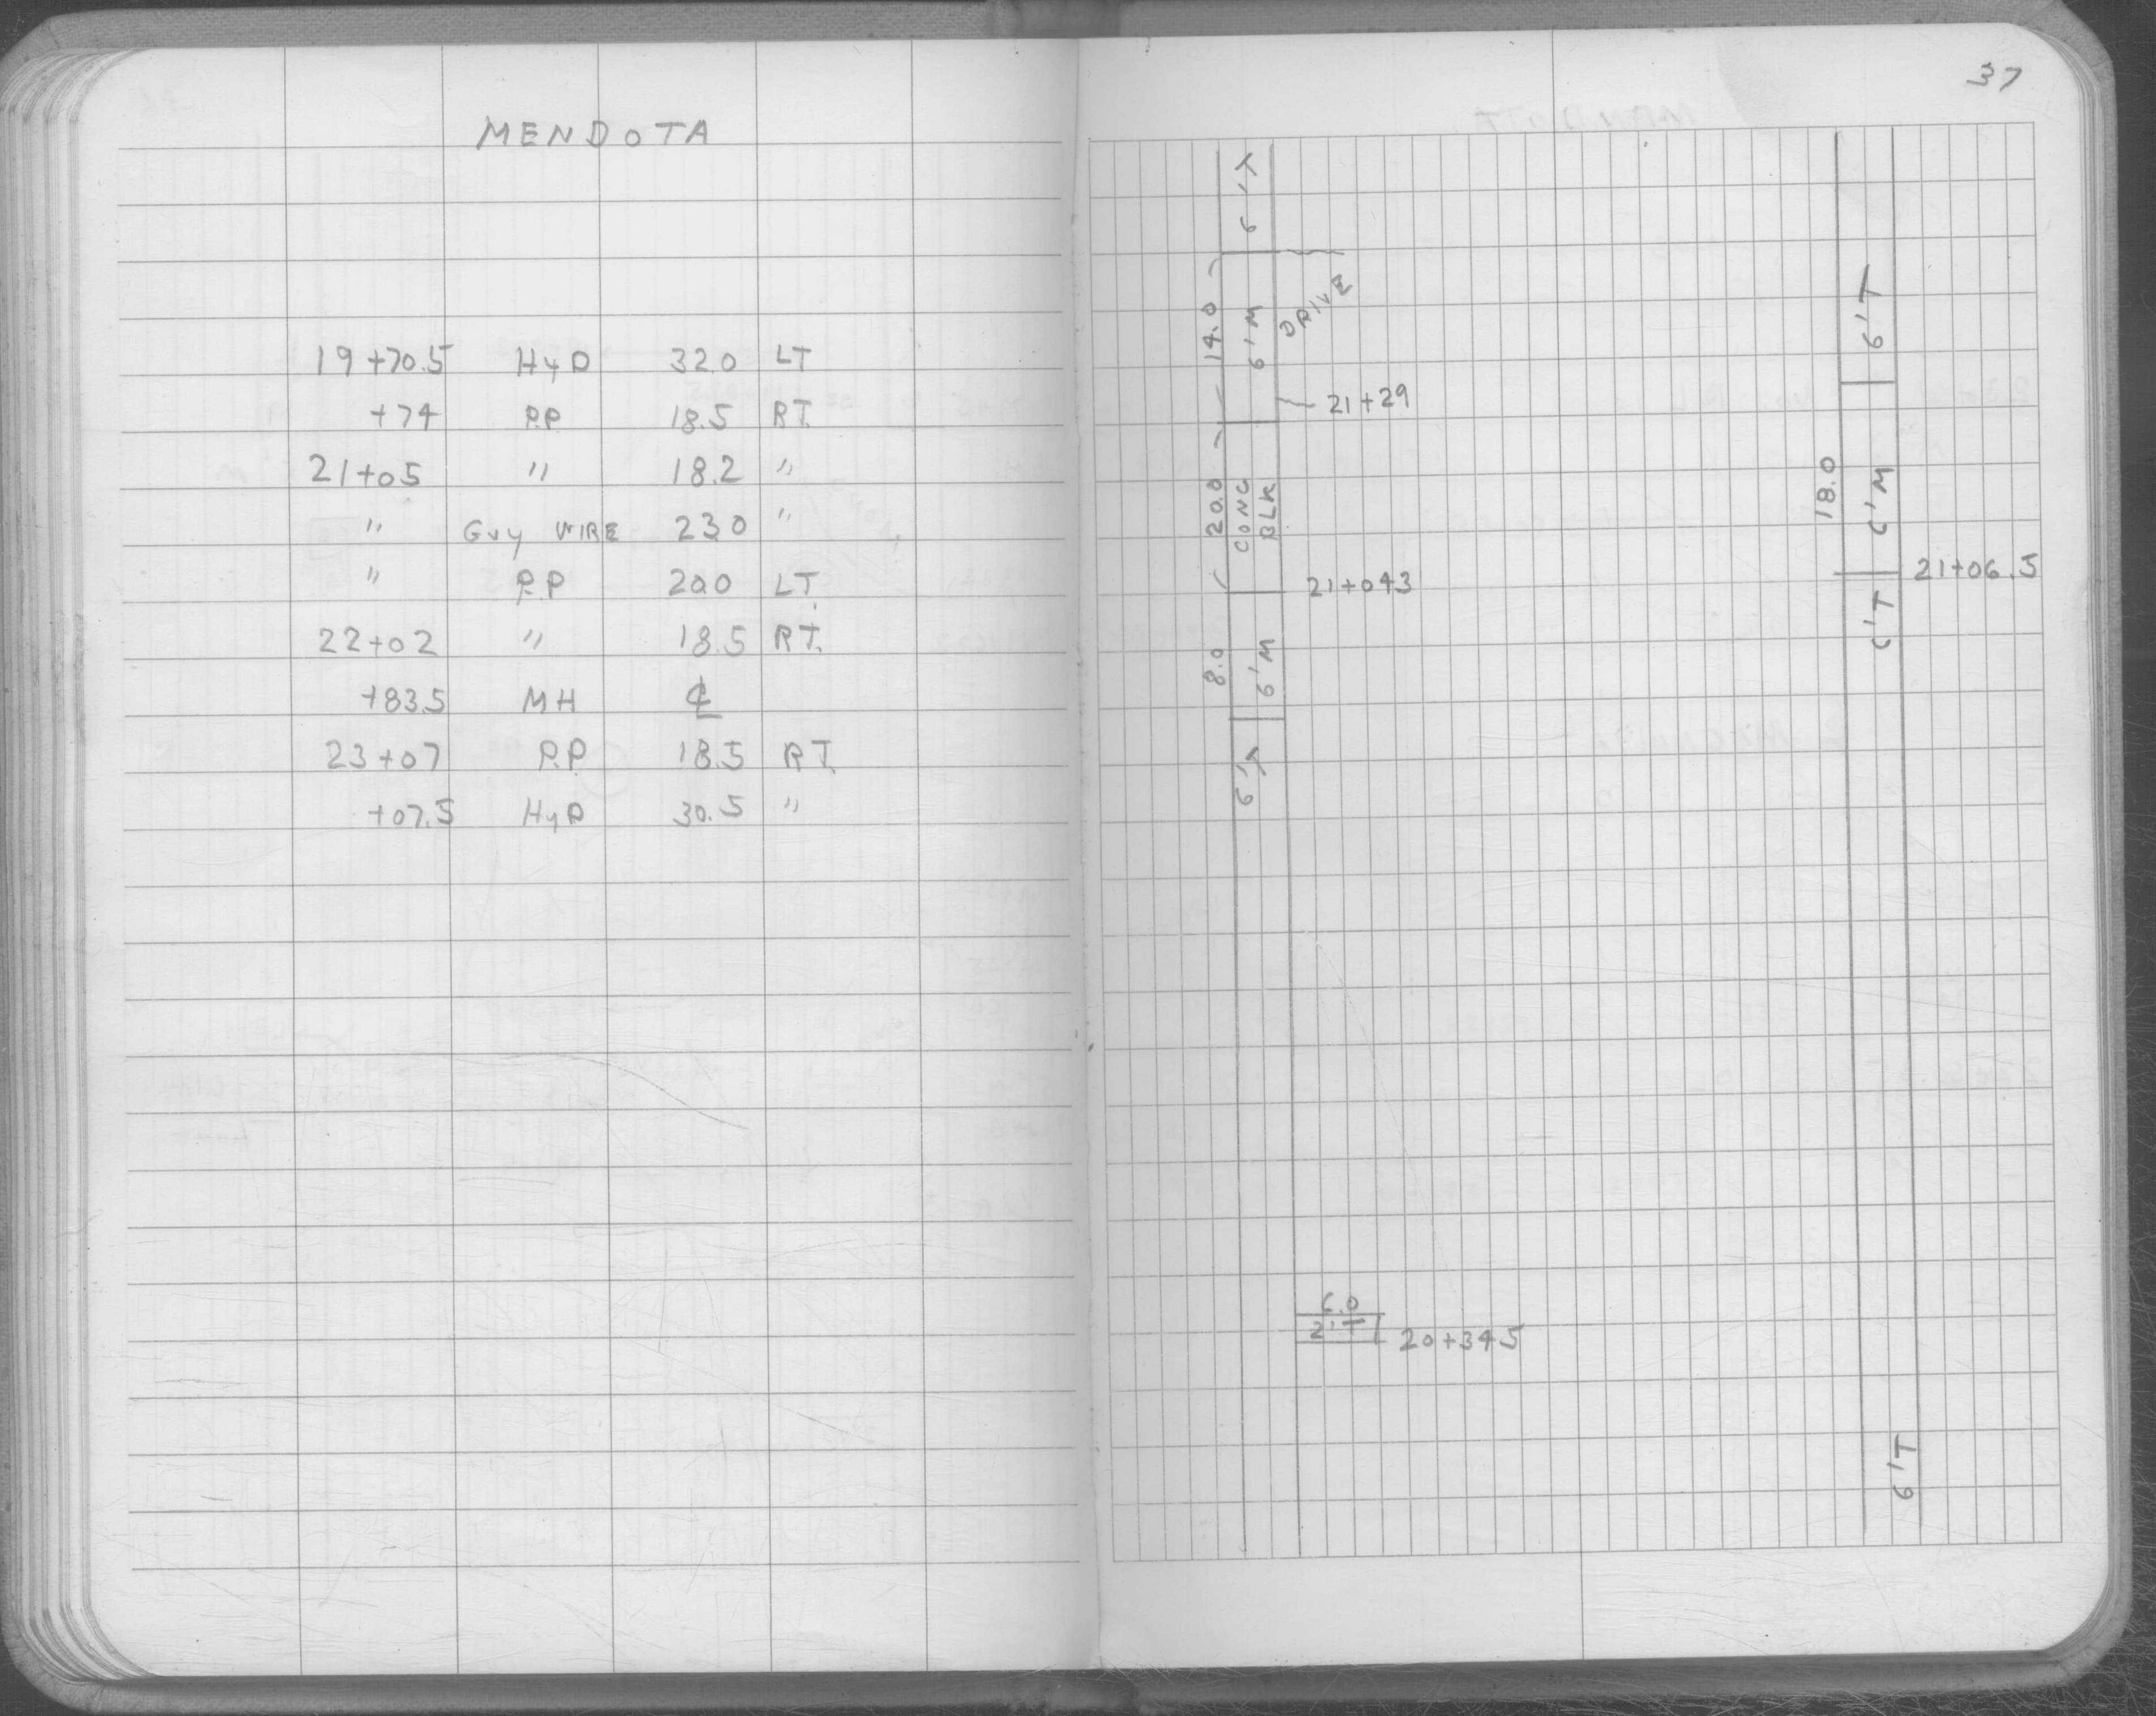 MENDOTA
19+70.5 HyD 32.0 LT
+74 P.P 18.5 RT.
21+05 " 18.2 "
" Guy WIRE 23.0 "
" P.P 20.0 LT.
22+02 " 18.5 RT.
+83.5 MH ℄
23+07 P.P 18.5 RT.
+07.5 HyD 30.5 "
37
6'T
14.0 6'M DRIVE
21+29
20.0 CONC
BLK
21+043
8.0 6'M
6'T
6'T
18.0 6'M
21+06.5
6'T
6.0
2'T 20+345
6'T